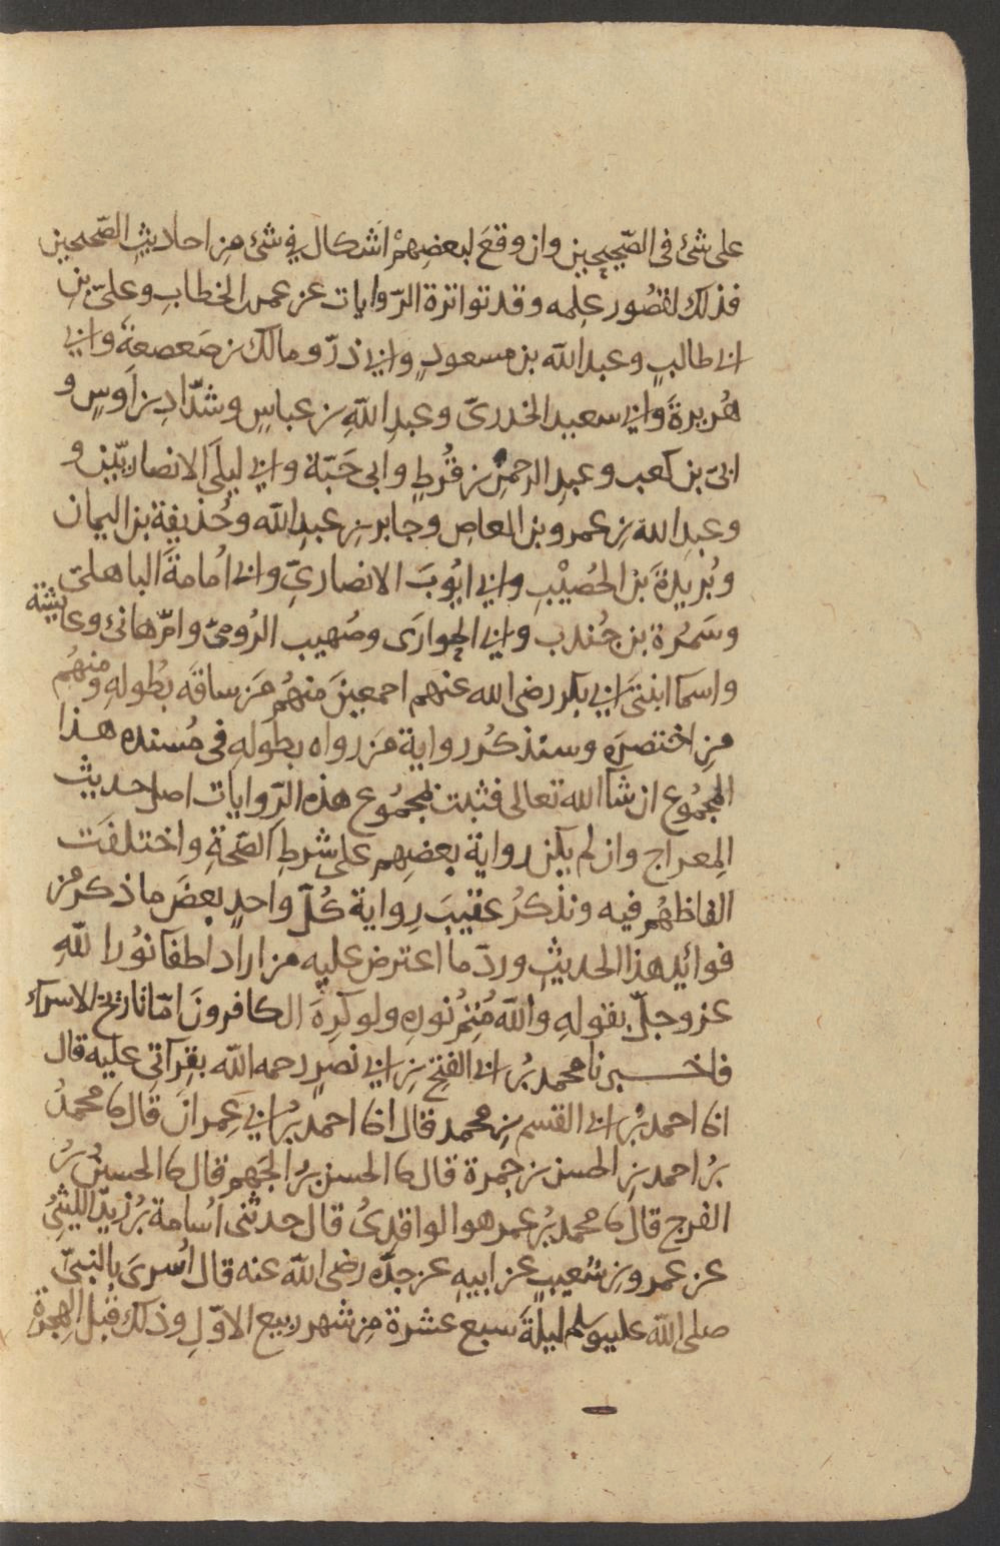 على شئ فى الصحيحين وان وقعَ لبعضِهمْ اشكال في شئ مِن احاديثِ الصّحيحين
فذلك لقصُور علمه وقد تواترة الرّوايات عن عمر بن الخطابِ وعلىّ بنِ
ابى طالبٍ وعبد اللّه بن مسعودٍ وابى ذرّ ومالك بن صَعصعةَ وابى
هُريرةَ وابى سعيد الخدرىّ وعبدِ اللّهِ بن عباسٍ وشدّادِ بن اَوسٍ و
ابىّ بن كعب وعبدِ الرحمنِ بن قُرطٍ وابى حَبّة وابى ليلَى الانصاريّين و
وعبدِ الله بنِ عمرو بن العاصِ وجابر بنِ عبدِ اللّه وحُذيفة بن اليمان
وبُريدةَ بن الحُصيْبِ وابى ايّوبَ الانصارىِّ وابى اُمامةَ الباهلىّ
وسَمُرة بن جُندب وابى الحوارَى وصُهيب الرُومىّ وامّ هانئ وعايشة
واسما ابنتَى ابى بكر رضى الله عنهم اجمعينَ منهُم مَن ساقَه بطُولهِ ومنهُم
مِن اختصرَه وسنذكُر رواية مَن رواه بطولهِ فى مُسنده هذا
المجمُوع ان شآ الله تعالى فثبت بمجمُوع هذه الرّوايات اصل حديث
المِعراج وان لم يكن رواية بعضِهم على شرطِ الصّحةِ واختلفَت
الفاظهُم فيه ونذكرُ عقيبَ رواية كُلّ واحدٍ بعضَ ما ذكر من
فوائد هذا الحديثِ وردّ ما اعترض عليه من اراد اطفآ نُور اللّهِ
عز وجلّ بقولهِ واللّه مُتِمّ نورهِ ولو كَرِهَ الكافرونَ امّا تاريخُ الاسرآء
فاخبرنا محمد بنُ ابى الفتحِ بنِ ابى نصرٍ رحمه اللّه بقِرآتى عليه قال
انا احمد بنُ ابى القسم بنِ محمد قال انا احمد بنُ ابى عِمرانَ قال نا محمدُ
بنُ احمد بنِ الحسن بن حمزة قال نا الحسن بنُ الجَهم قال نا الحسينُ بنُ
الفرج قال نا محمد بنُ عمر هو الواقدىُ قال حدثنى اُسامة بنُ زيدٍ الليثىُ
عن عمرو بن شُعيبٍ عن ابيهِ عن جدّه رضى اللّه عنه قال اُسرىَ بالنبىّ
صلى اللّه عليه وسلم ليلةَ سبع عشرة مِن شهر ربيع الاوّلِ وذلك قبل الهِجرةِ